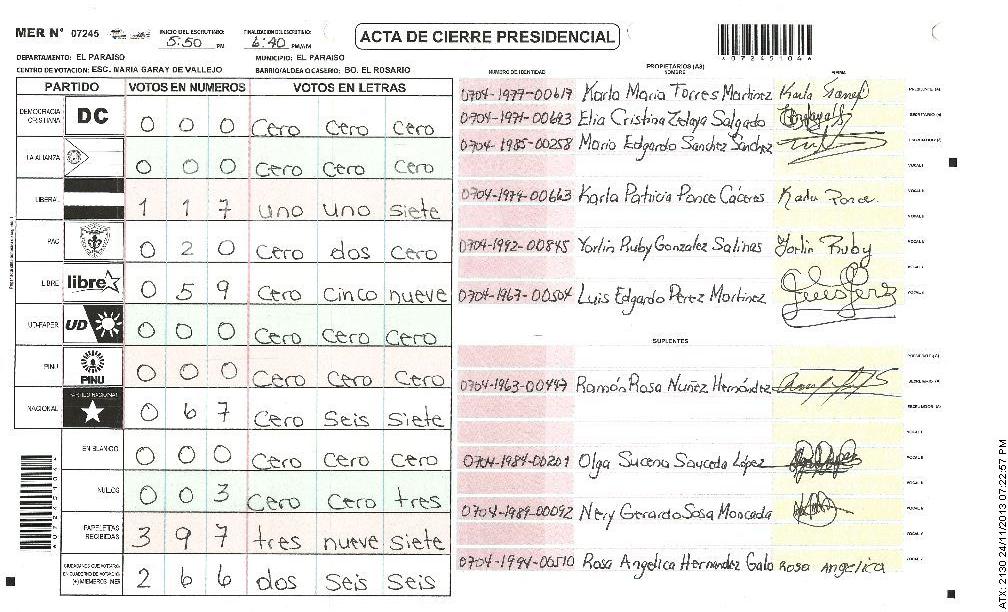 MER N° 07245 INICIO DEL ESCRUTINIO: 5:50 PM FINALIZACION DEL ESCRUTINIO: 6:40 PM/AM
ACTA DE CIERRE PRESIDENCIAL
DEPARTAMENTO: EL PARAISO MUNICIPIO: EL PARAISO
CENTRO DE VOTACION: ESC. MARIA GARAY DE VALLEJO BARRIO/ALDEA O CASERIO: BO. EL ROSARIO
PARTIDO VOTOS EN NUMEROS VOTOS EN LETRAS
DEMOCRACIA CRISTIANA DC 0 0 0 Cero Cero Cero
LA ALIANZA 0 0 0 Cero Cero Cero
LIBERAL 1 1 7 uno uno siete
PAC 0 2 0 Cero dos cero
LIBRE libre 0 5 9 Cero Cinco nueve
UD-FAPER UD 0 0 0 Cero Cero Cero
PINU PINU 0 0 0 Cero Cero Cero
NACIONAL PARTIDO NACIONAL 0 6 7 Cero Seis Siete
EN BLANCO 0 0 0 Cero Cero Cero
NULOS 0 0 3 Cero Cero tres
PAPELETAS RECIBIDAS 3 9 7 tres nueve siete
CIUDADANOS QUE VOTARON EN CUADERNO DE VOTACION (+) MIEMBROS MER 2 6 6 dos Seis Seis
PROPIETARIOS (AS)
NUMERO DE IDENTIDAD NOMBRE FIRMA
0704-1977-00617 Karla Maria Torres Martinez Karla PRESIDENTE (A)
0704-1971-00623 Elia Cristina Zelaya Salgado SECRETARIO (A)
0704-1985-00258 Mario Edgardo Sanchez Sanchez ESCRUTADOR (A)
VOCAL I
0704-1974-00663 Karla Patricia Ponce Cáceres Karla Ponce
0704-1992-00845 Yorlin Ruby Gonzalez Salinas Yorlin Ruby
0704-1967-00504 Luis Edgardo Perez Martinez
SUPLENTES
PRESIDENTE (A)
0704-1963-00447 Ramón Rosa Nuñez Hernández SECRETARIO (A)
ESCRUTADOR (A)
0704-1984-00201 Olga Sucena Sauceda López
0704-1989-00092 Nery Gerardo Sosa Moncada
0704-1994-00510 Rosa Angelica Hernandez Galo Rosa Angelica
ATX: 2130 24/11/2013 07:22:57 PM